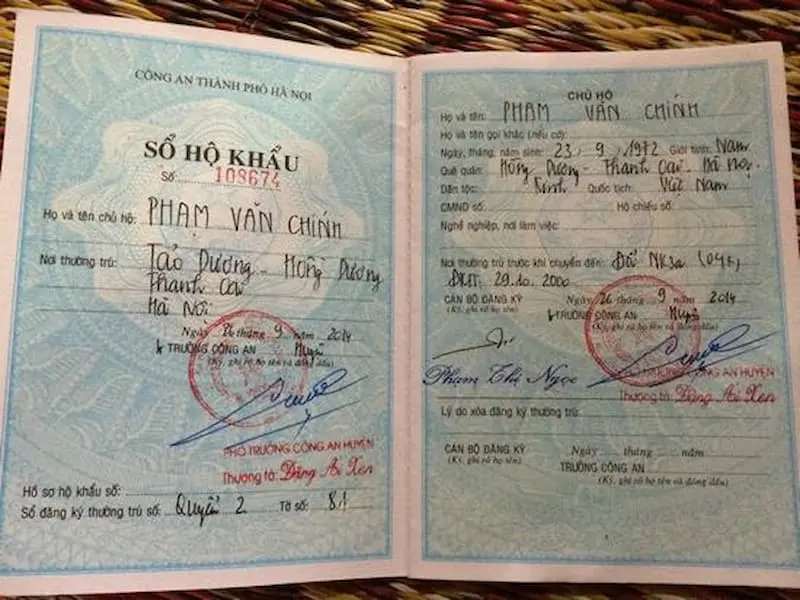 CÔNG AN THÀNH PHỐ HÀ NỘI
SỔ HỘ KHẨU
Số: 108674
Họ và tên chủ hộ: PHẠM VĂN CHÍNH
Nơi thường trú: Tảo Dương - Hồng Dương
Thanh Oai
Hà Nội
Ngày 26 tháng 9 năm 2014
TRƯỞNG CÔNG AN Huyện
(Ký, ghi rõ họ tên và đóng dấu)
PHÓ TRƯỞNG CÔNG AN HUYỆN
Thượng tá: Đặng Ai Xen
Hồ sơ hộ khẩu số:
Sổ đăng ký thường trú số: Quyển 2 Tờ số: 81
CHỦ HỘ
Họ và tên: PHẠM VĂN CHÍNH
Họ và tên gọi khác (nếu có):
Ngày, tháng, năm sinh: 23 / 9 / 1972 Giới tính: Nam
Quê quán: Hồng Dương - Thanh Oai - Hà Nội.
Dân tộc: Kinh Quốc tịch: Việt Nam
CMND số: Hộ chiếu số:
Nghề nghiệp, nơi làm việc:
Nơi thường trú trước khi chuyển đến: NK3a
29.10.2000
CÁN BỘ ĐĂNG KÝ Ngày 26 tháng 9 năm 2014
(Ký, ghi rõ họ tên) TRƯỞNG CÔNG AN Huyện
(Ký, ghi rõ họ tên và đóng dấu)
Phạm Thị Ngọc
PHÓ TRƯỞNG CÔNG AN HUYỆN
Thượng tá: Đặng Ai Xen
Lý do xóa đăng ký thường trú:
CÁN BỘ ĐĂNG KÝ Ngày ... tháng ... năm
(Ký, ghi rõ họ tên) TRƯỞNG CÔNG AN
(Ký, ghi rõ họ tên và đóng dấu)